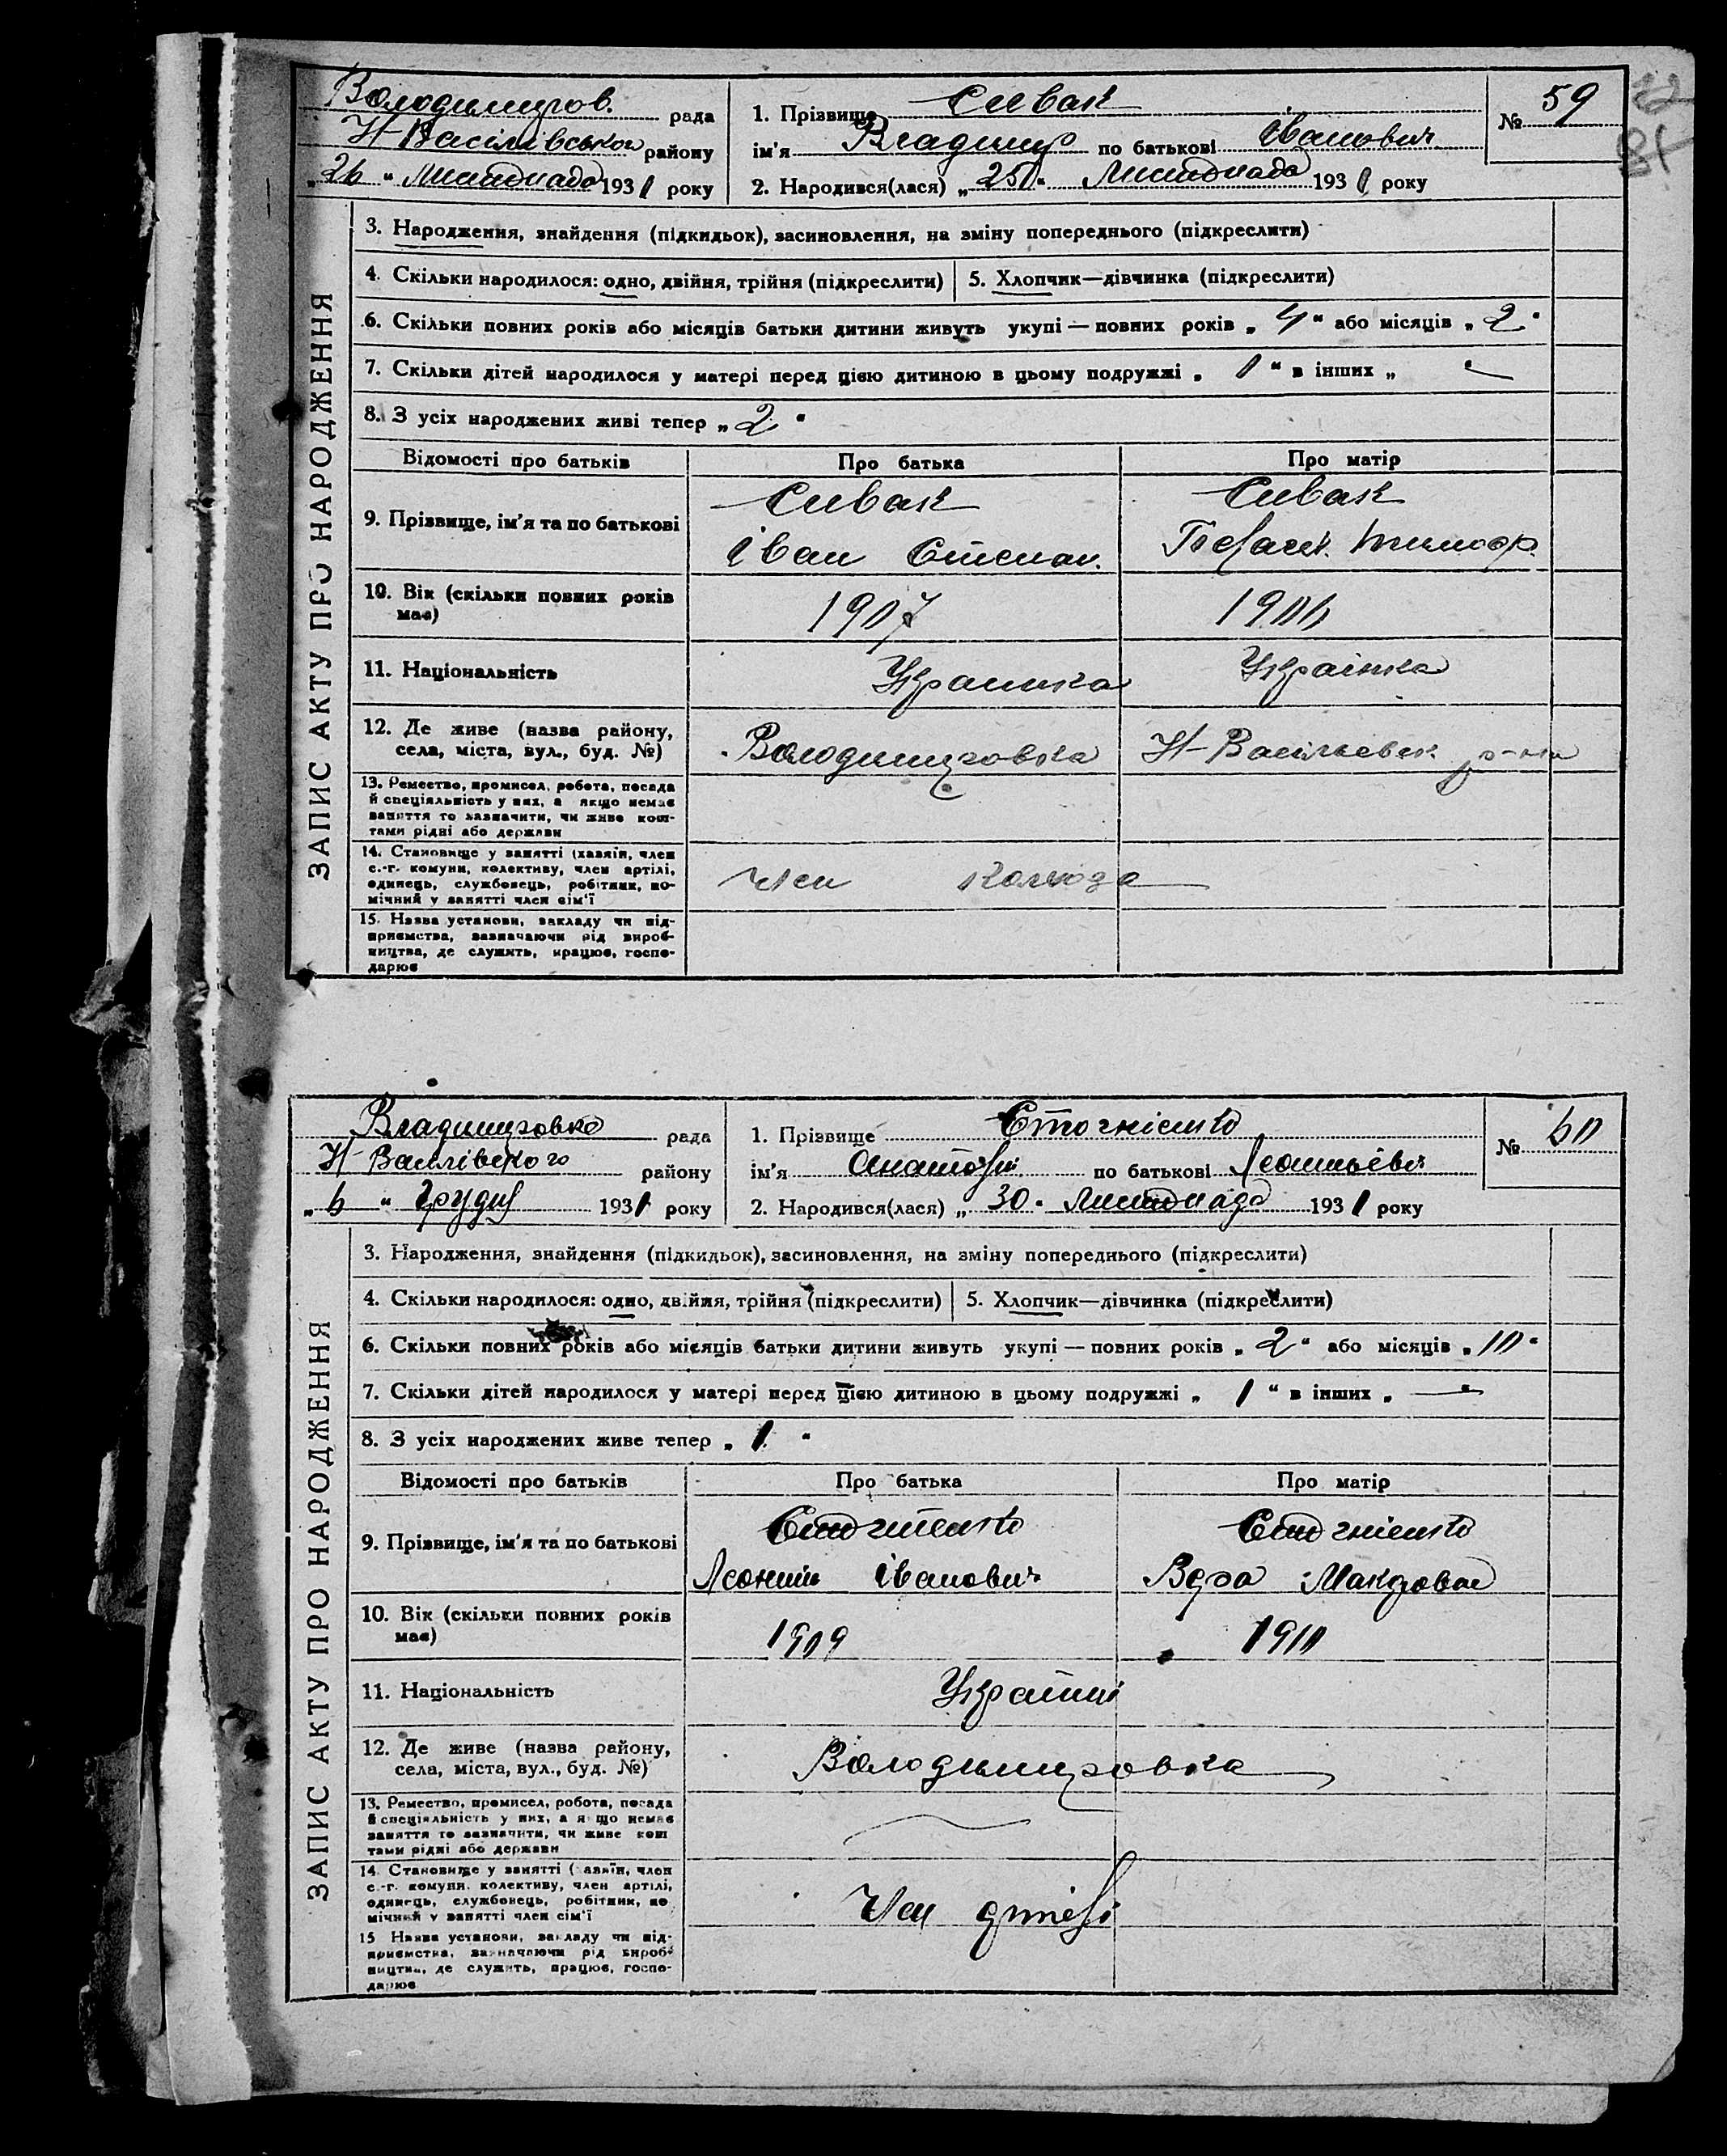 Володимиров. рада
Н-Василівського району
„26" Листопада 1931 року
1. Прізвище Сивак
ім'я Владимир по батькові Іванович
2. Народився(лася) „25" Листопада 1931 року
№ 59
ЗАПИС АКТУ ПРО НАРОДЖЕННЯ
3. Народження, знайдення (підкидьок), засиновлення, на зміну попереднього (підкреслити)
4. Скільки народилося: одно, двійня, трійня (підкреслити) 5. Хлопчик—дівчинка (підкреслити)
6. Скільки повних років або місяців батьки дитини живуть укупі — повних років „4" або місяців „2"
7. Скільки дітей народилося у матері перед цією дитиною в цьому подружжі „1" в інших „ —
8. З усіх народжених живі тепер „2"
Відомості про батьків Про батька Про матір
9. Прізвище, ім'я та по батькові
Сивак
Іван Степан.
Сивак
10. Вік (скільки повних років має)
1907 1906
11. Національність
Украинка Українка
12. Де живе (назва району, села, міста, вул., буд. №)
Володимировка Н-Васильевск р-на
13. Ремество, промисел, робота, посада
й спеціяльність у них, а якщо немає
заняття то зазначити, чи живе кош-
тами рідні або держави
14. Становище у занятті (хазяїн, член
с.-г. комуни, колективу, член артілі,
одинець, службовець, робітник, по-
мічний у занятті член сім'ї
Член колхоза
15. Назва установи, закладу чи під-
приємства, зазначаючи рід вироб-
ництва, де служить, працює, госпо-
дарює
Владимировка рада
Н-Василівского району
„6" Грудня 1931 року
1. Прізвище Стогнієнко
ім'я Анатолій по батькові
2. Народився(лася) „30" Листопада 1931 року
№ 60
ЗАПИС АКТУ ПРО НАРОДЖЕННЯ
3. Народження, знайдення (підкидьок), засиновлення, на зміну попереднього (підкреслити)
4. Скільки народилося: одно, двійня, трійня (підкреслити) 5. Хлопчик—дівчинка (підкреслити)
6. Скільки повних років або місяців батьки дитини живуть укупі — повних років „2" або місяців „10"
7. Скільки дітей народилося у матері перед цією дитиною в цьому подружжі „1" в інших „ — "
8. З усіх народжених живе тепер „1"
Відомості про батьків Про батька Про матір
9. Прізвище, ім'я та по батькові
Стогниенко
Іванович
Стогнієнко
Вера Макаровна
10. Вік (скільки повних років має)
1909 1910
11. Національність
Українці
12. Де живе (назва району, села, міста, вул., буд. №)
Володимировка
13. Ремество, промисел, робота, посада
й спеціяльність у них, а якщо немає
заняття то зазначити, чи живе кош
тами рідні або держави
14. Становище у занятті (хазяїн, член
с.-г. комуни, колективу, член артілі,
одинець, службовець, робітник, по
мічний у занятті член сім'ї
Член артелі
15 Назва установи, закладу чи під-
приємства, зазначаючи рід вироб-
ництва, де служить, працює, госпо-
дарює